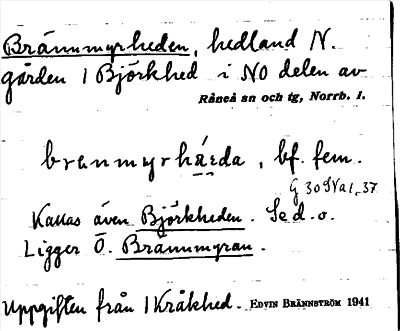 Brännmyrheden, hedland N.
gården 1 Björkhed i NO delen av
Råneå sn och tg, Norrb. l.
branmyrhä́rda, bf. fem.
Kallas även Björkheden. Se d. o.
Ligger Ö. Brännmyran.
Uppgiften från 1 Kråkhed. EDVIN BRÄNNSTRÖM 1941